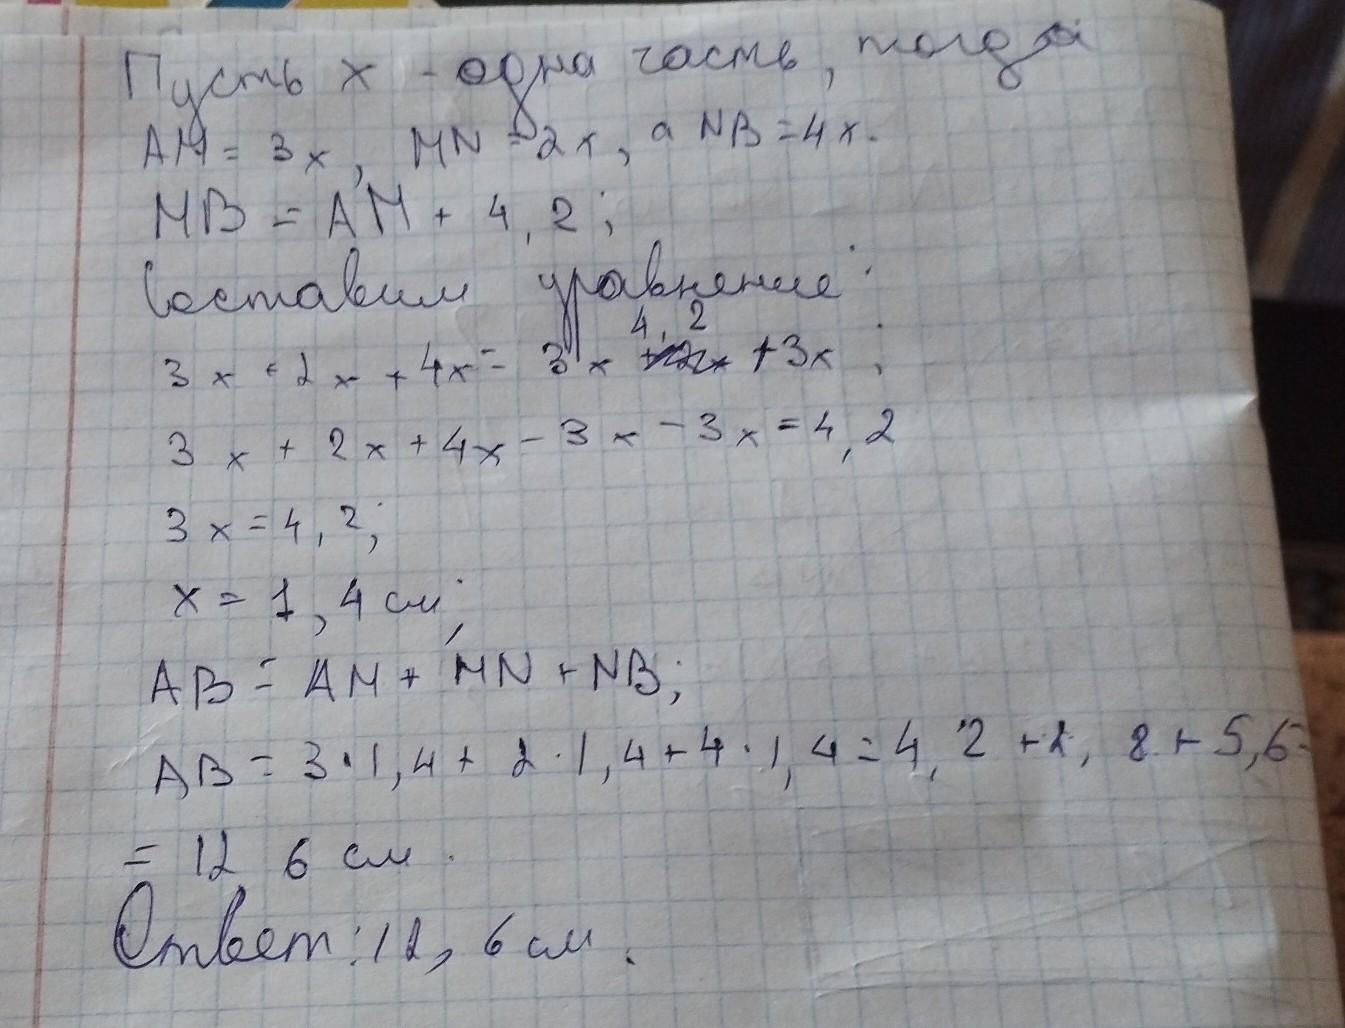 Пусть x - одна часть, тогда
AM = 3x, MN = 2x, а NB = 4x.
MB = AM + 4,2;
Составим уравнение:
4,2
3x + 2x + 4x = 3x + 3x;
3x + 2x + 4x - 3x - 3x = 4,2
3x = 4,2;
x = 1,4 см;
AB = AM + MN + NB;
AB = 3·1,4 + 2·1,4 + 4·1,4 = 4,2 + 2,8 + 5,6=
= 12 6 см.
Ответ: 12,6 см.